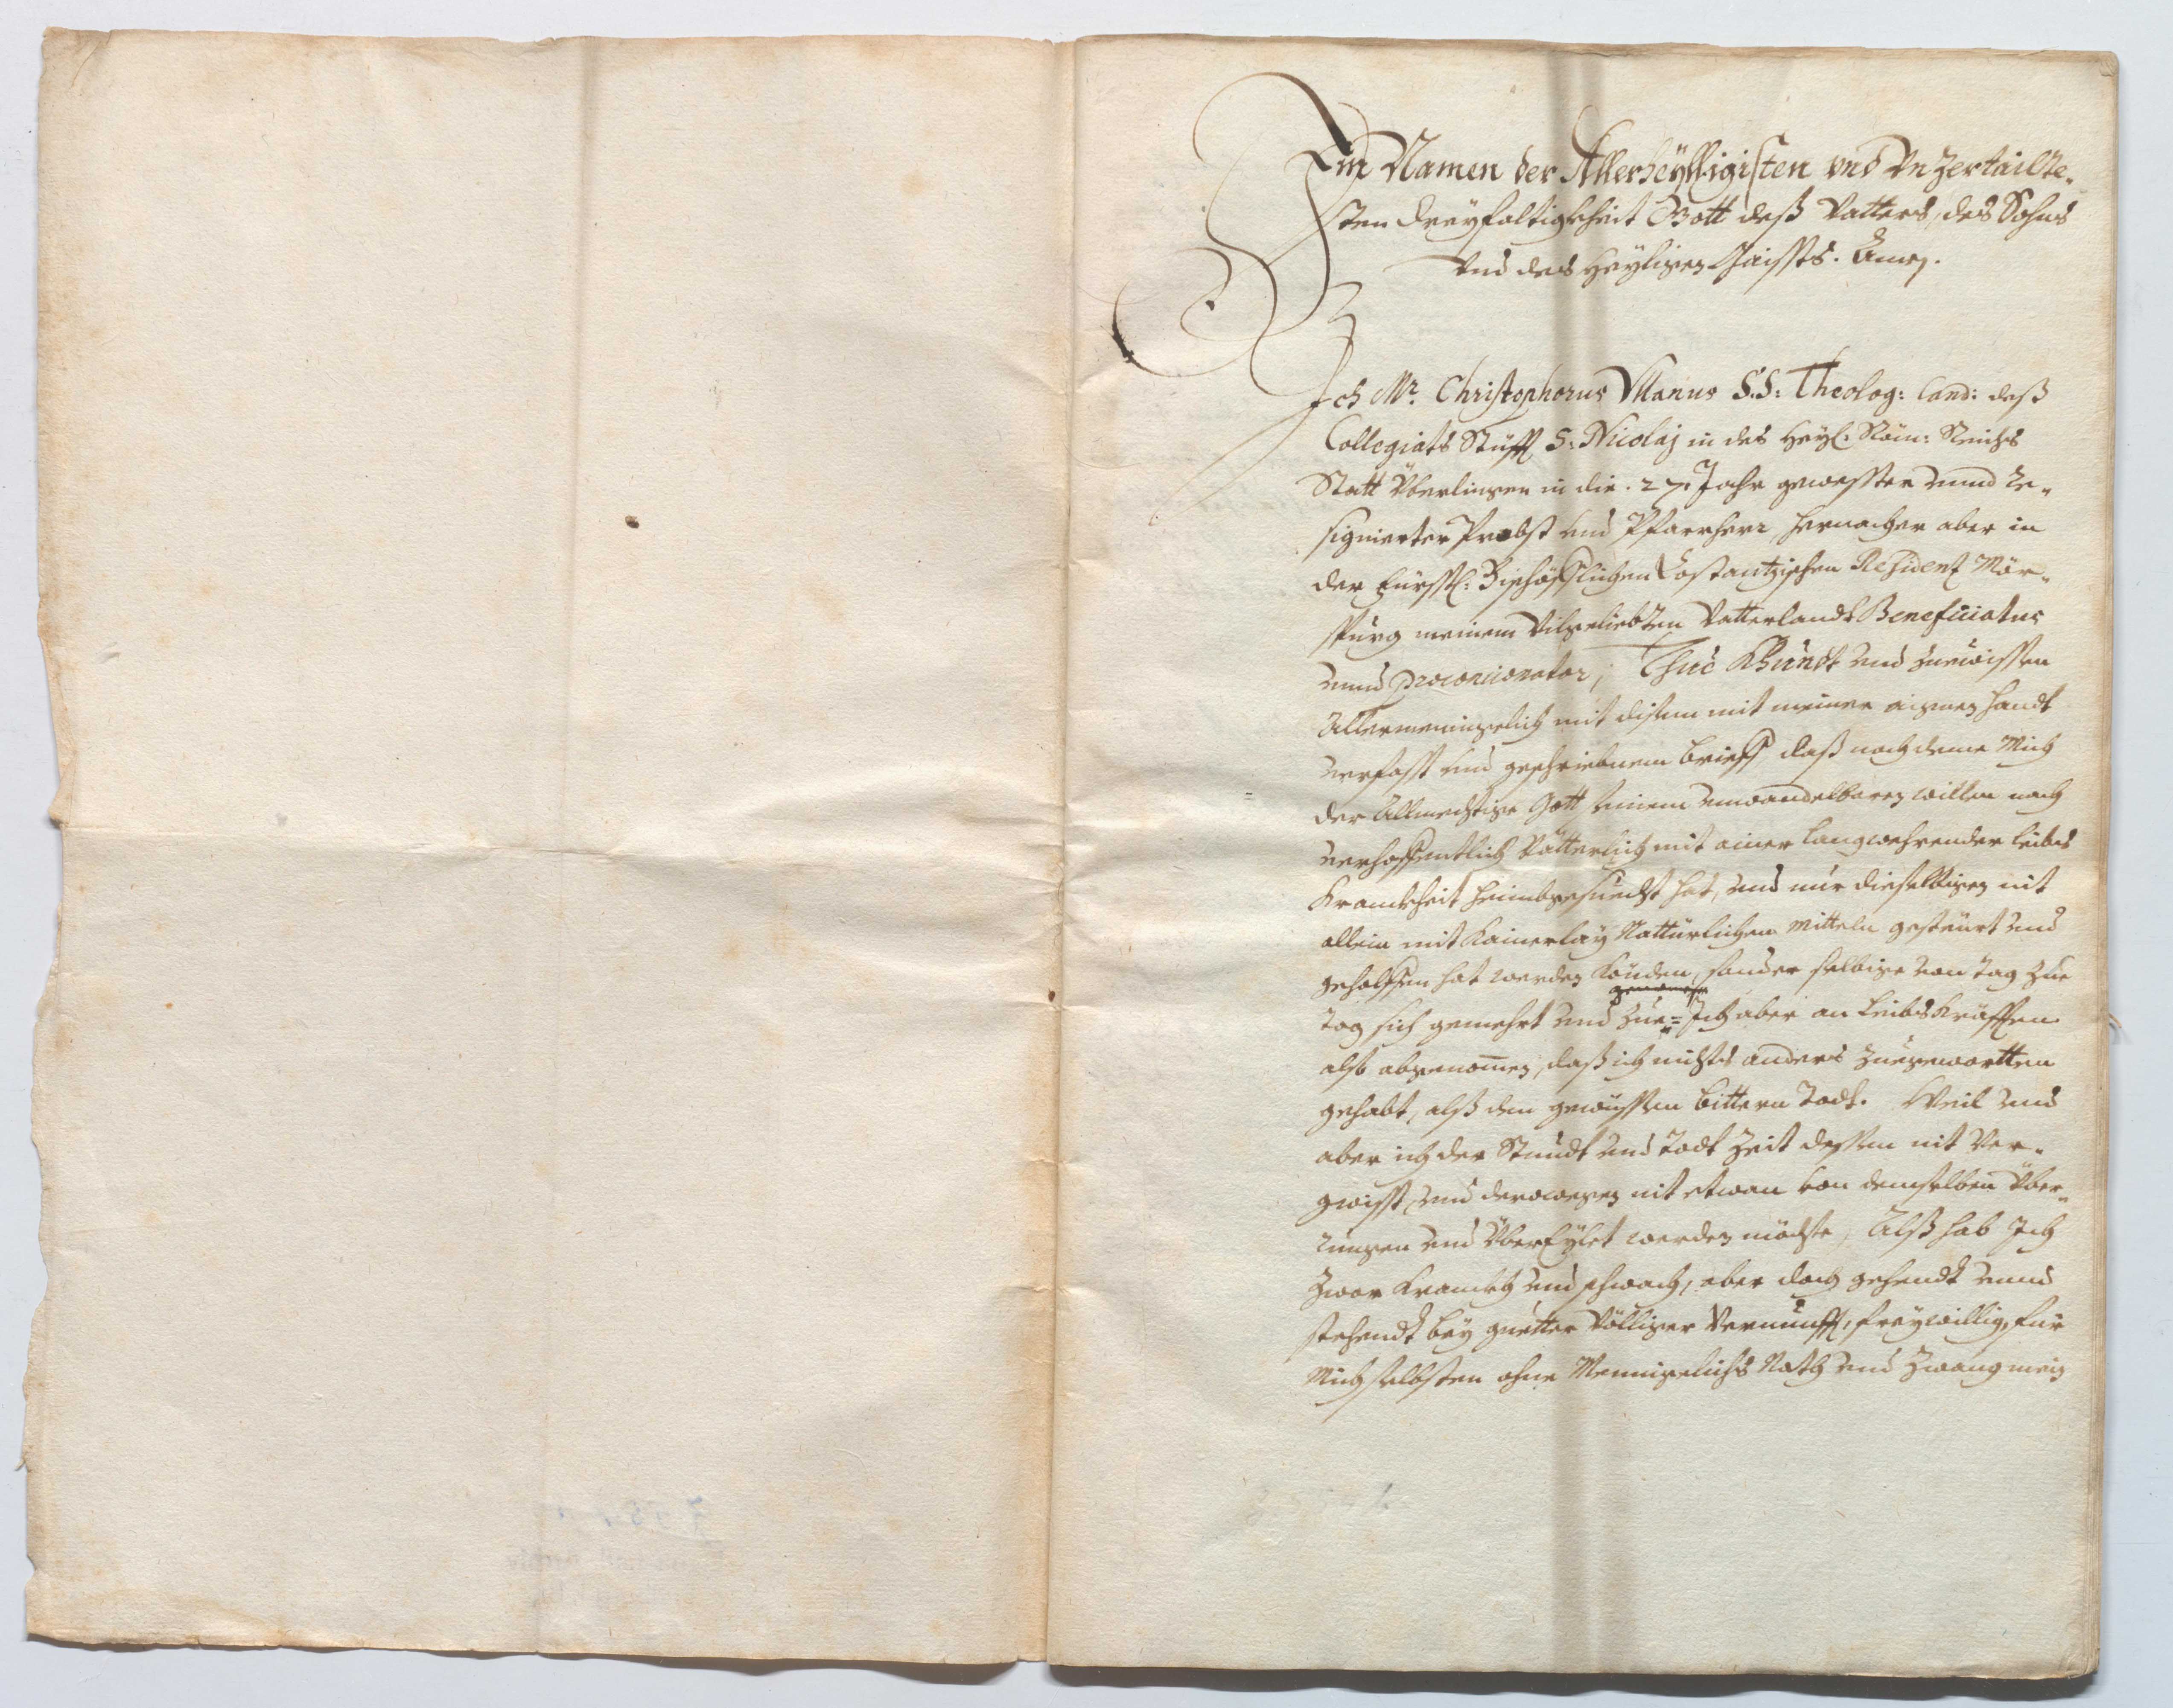 Im Namen der Allerheÿlligisten vnd Vnzertailte-
sten Dreÿfaltigkheit Gott deß Vatters, des Sohns
Vnd des Heÿligen Gaissts. Amen.
Ich Mr. Christophorus Vllanus S.S: Theolog: Cand: deß
Collegiats Stüfft S: Nicolaj in des Heÿl: Röm: Reichs
Statt Vberlingen in die .27. Jahr gewesster vnnd re-
signierter Probst vnd Pfarrherr, hernacher aber in
der Fürstl: Bischöfflichen Costantzischen Residentz Mör-
spurg meinem Vilgeliebten Vatterlandt Beneficiatus
vnnd Proconcionator, Thue Khundt vnd zuewissen
Allermeningelich mit disem mit meiner aignen handt
verfasst vnd geschribnem brieff, daß nach deme Mich
der Allmechtige Gott seinem vnwandelbaren willen nach
verhoffentlich Vätterlich mit ainer langwehrender leibs
Kranckheit heimbgesuecht hat, vnd mir dieselbigen nit
allein mit Kainerlaÿ Nattürlichen Mitteln gesteürt vnd
geholffen hat werden Könden, sonder selbige von tag zue
tag sich gemehrt vnd zue= Ich aber an leibskräfften
also abgenomen, daß ich nichts anders zuegewartten
gehabt, alß den gewüssen bittern Todt. Weil vnd
aber ich der Stundt vnd Todt Zeit dessen nit ver-
gwisst, vnd derowegen nit etwan von demselben Vber-
rungen vnd Vbereÿlet werden möchte, Alß hab Ich
zwar Kranckh vnd schwach, aber doch gehendt vnnd
stehendt beÿ guetter Völliger Vernunfft, freÿwillig, für
Mich selbsten ohne Mennigelichs Rath vnd Zwang mein